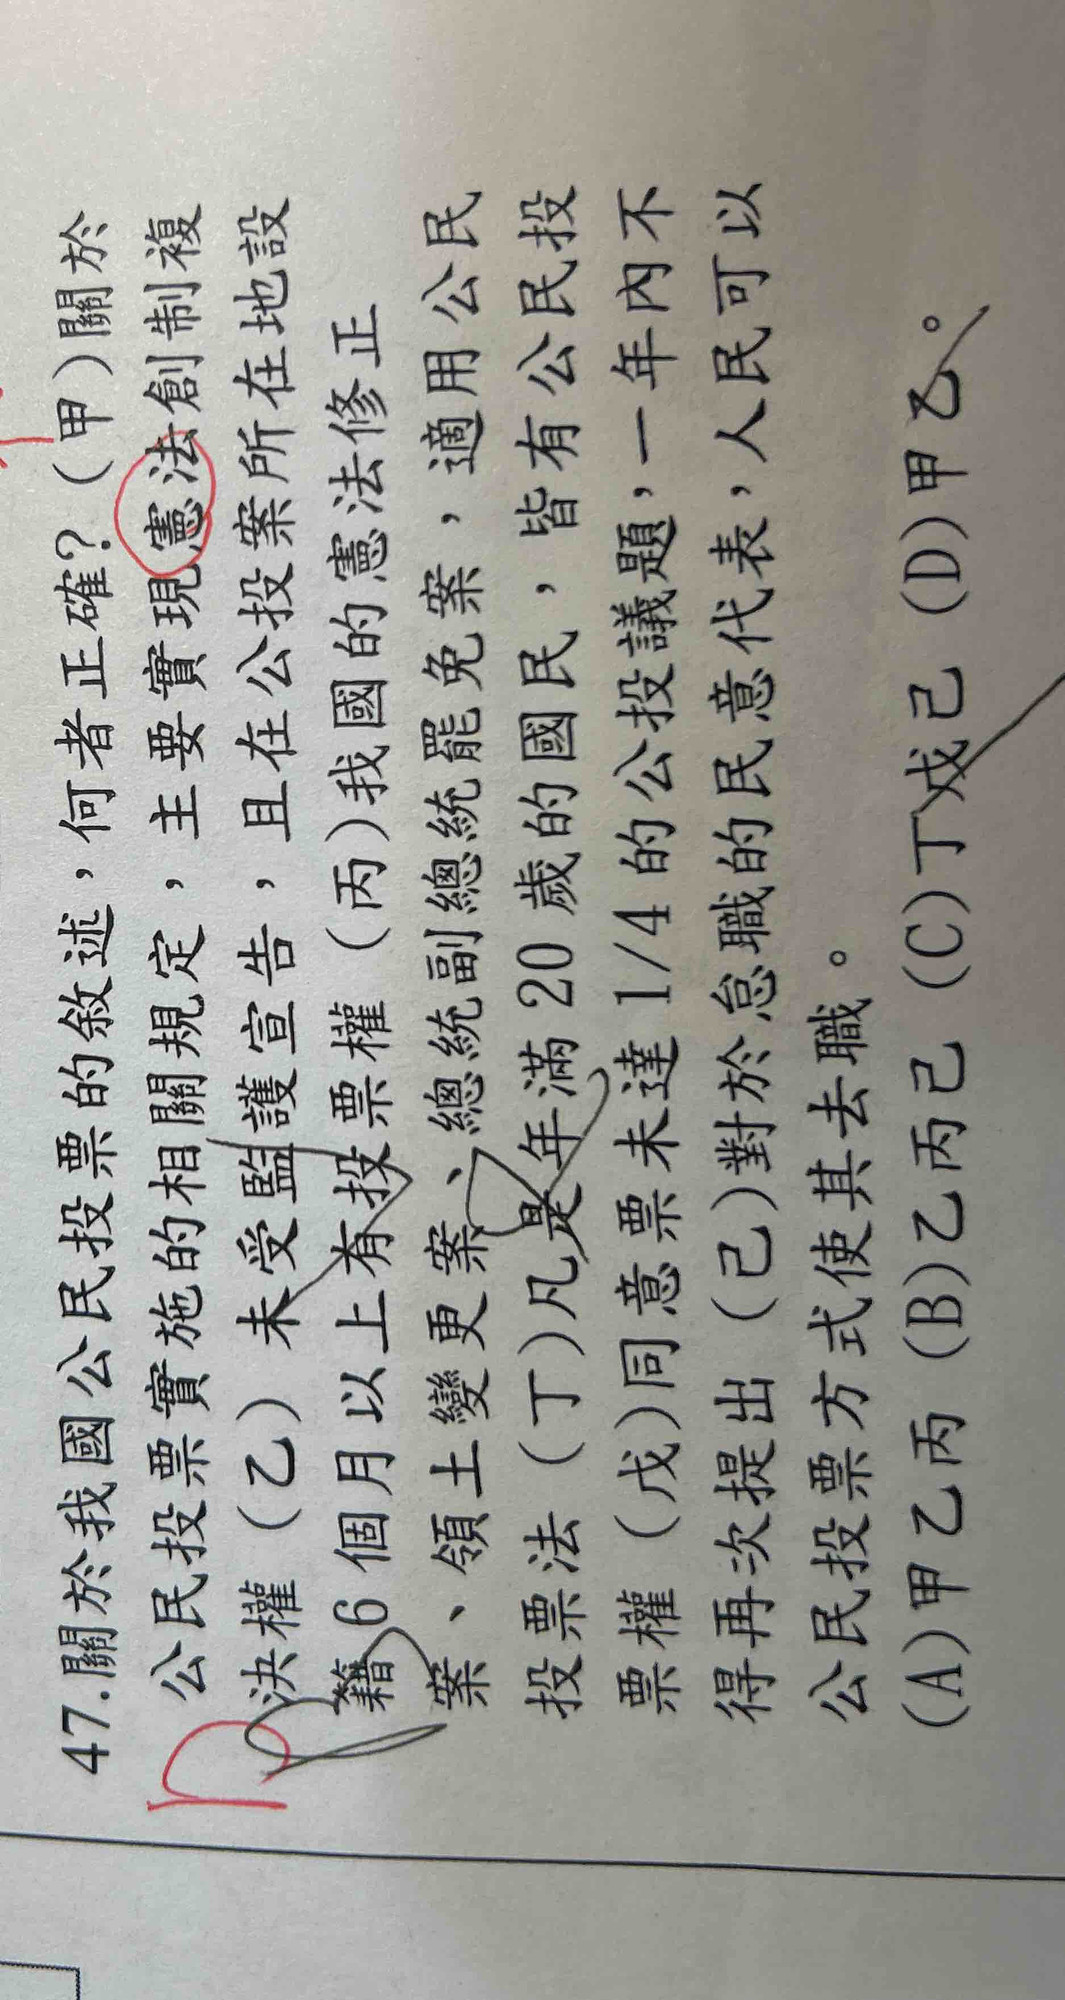 47.關於我國公民投票的敘述，何者正確？（甲）關於
公民投票實施的相關規定，主要實現憲法創制複
決權（乙）未受監護宣告，且在公投案所在地設
籍6個月以上有投票權（丙）我國的憲法修正
案、領土變更案、總統副總統罷免案，適用公民
投票法（丁）凡是年滿20歲的國民，皆有公民投
票權（戊）同意票未達1/4的公投議題，一年內不
得再次提出（己）對於怠職的民意代表，人民可以
公民投票方式使其去職。
(A)甲乙丙 (B)乙丙己 (C)丁戊己 (D)甲乙。
D